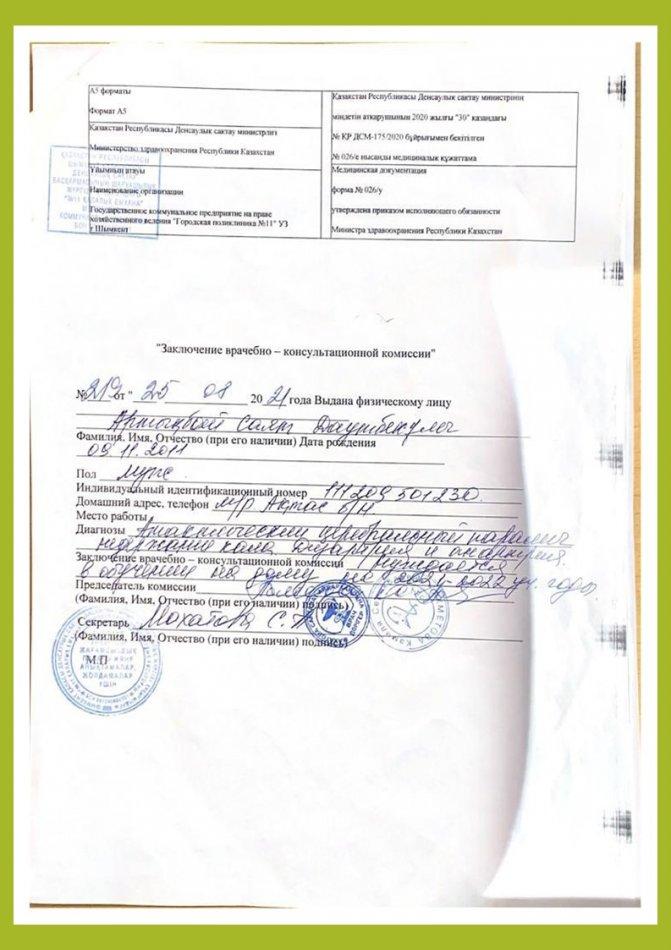 А5 форматы
Формат А5
Қазақстан Республикасы Денсаулық сақтау министрлігі
Министерство здравоохранения Республики Казахстан
Ұйымның атауы
Наименование организации
Государственное коммунальное предприятие на праве
хозяйственного ведения "Городская поликлиника №11" УЗ
г Шымкент
Қазақстан Республикасы Денсаулық сақтау министрінің
міндетін атқарушының 2020 жылғы "30" қазандағы
№ ҚР ДСМ-175/2020 бұйрығымен бекітілген
№ 026/е нысанды медициналық құжаттама
Медицинская документация
форма № 026/у
утверждена приказом исполняющего обязанности
Министра здравоохранения Республики Казахстан
"Заключение врачебно – консультационной комиссии"
№219 от " 25 08 2021 года Выдана физическому лицу
Фамилия, Имя, Отчество (при его наличии) Дата рождения
09.11.2011
Пол муж.
Индивидуальный идентификационный номер
Домашний адрес, телефон м/р Ақтас б/н
Место работы
Диагнозы церебральный паралич
недержание кала дизартрия и
Заключение врачебно – консультационной комиссии нуждается
в обучении на дому на 2021-2022 уч. годы
Председатель комиссии
(Фамилия, Имя, Отчество (при его наличии) подпись)
Секретарь
(Фамилия, Имя, Отчество (при его наличии) подпись)
М.П